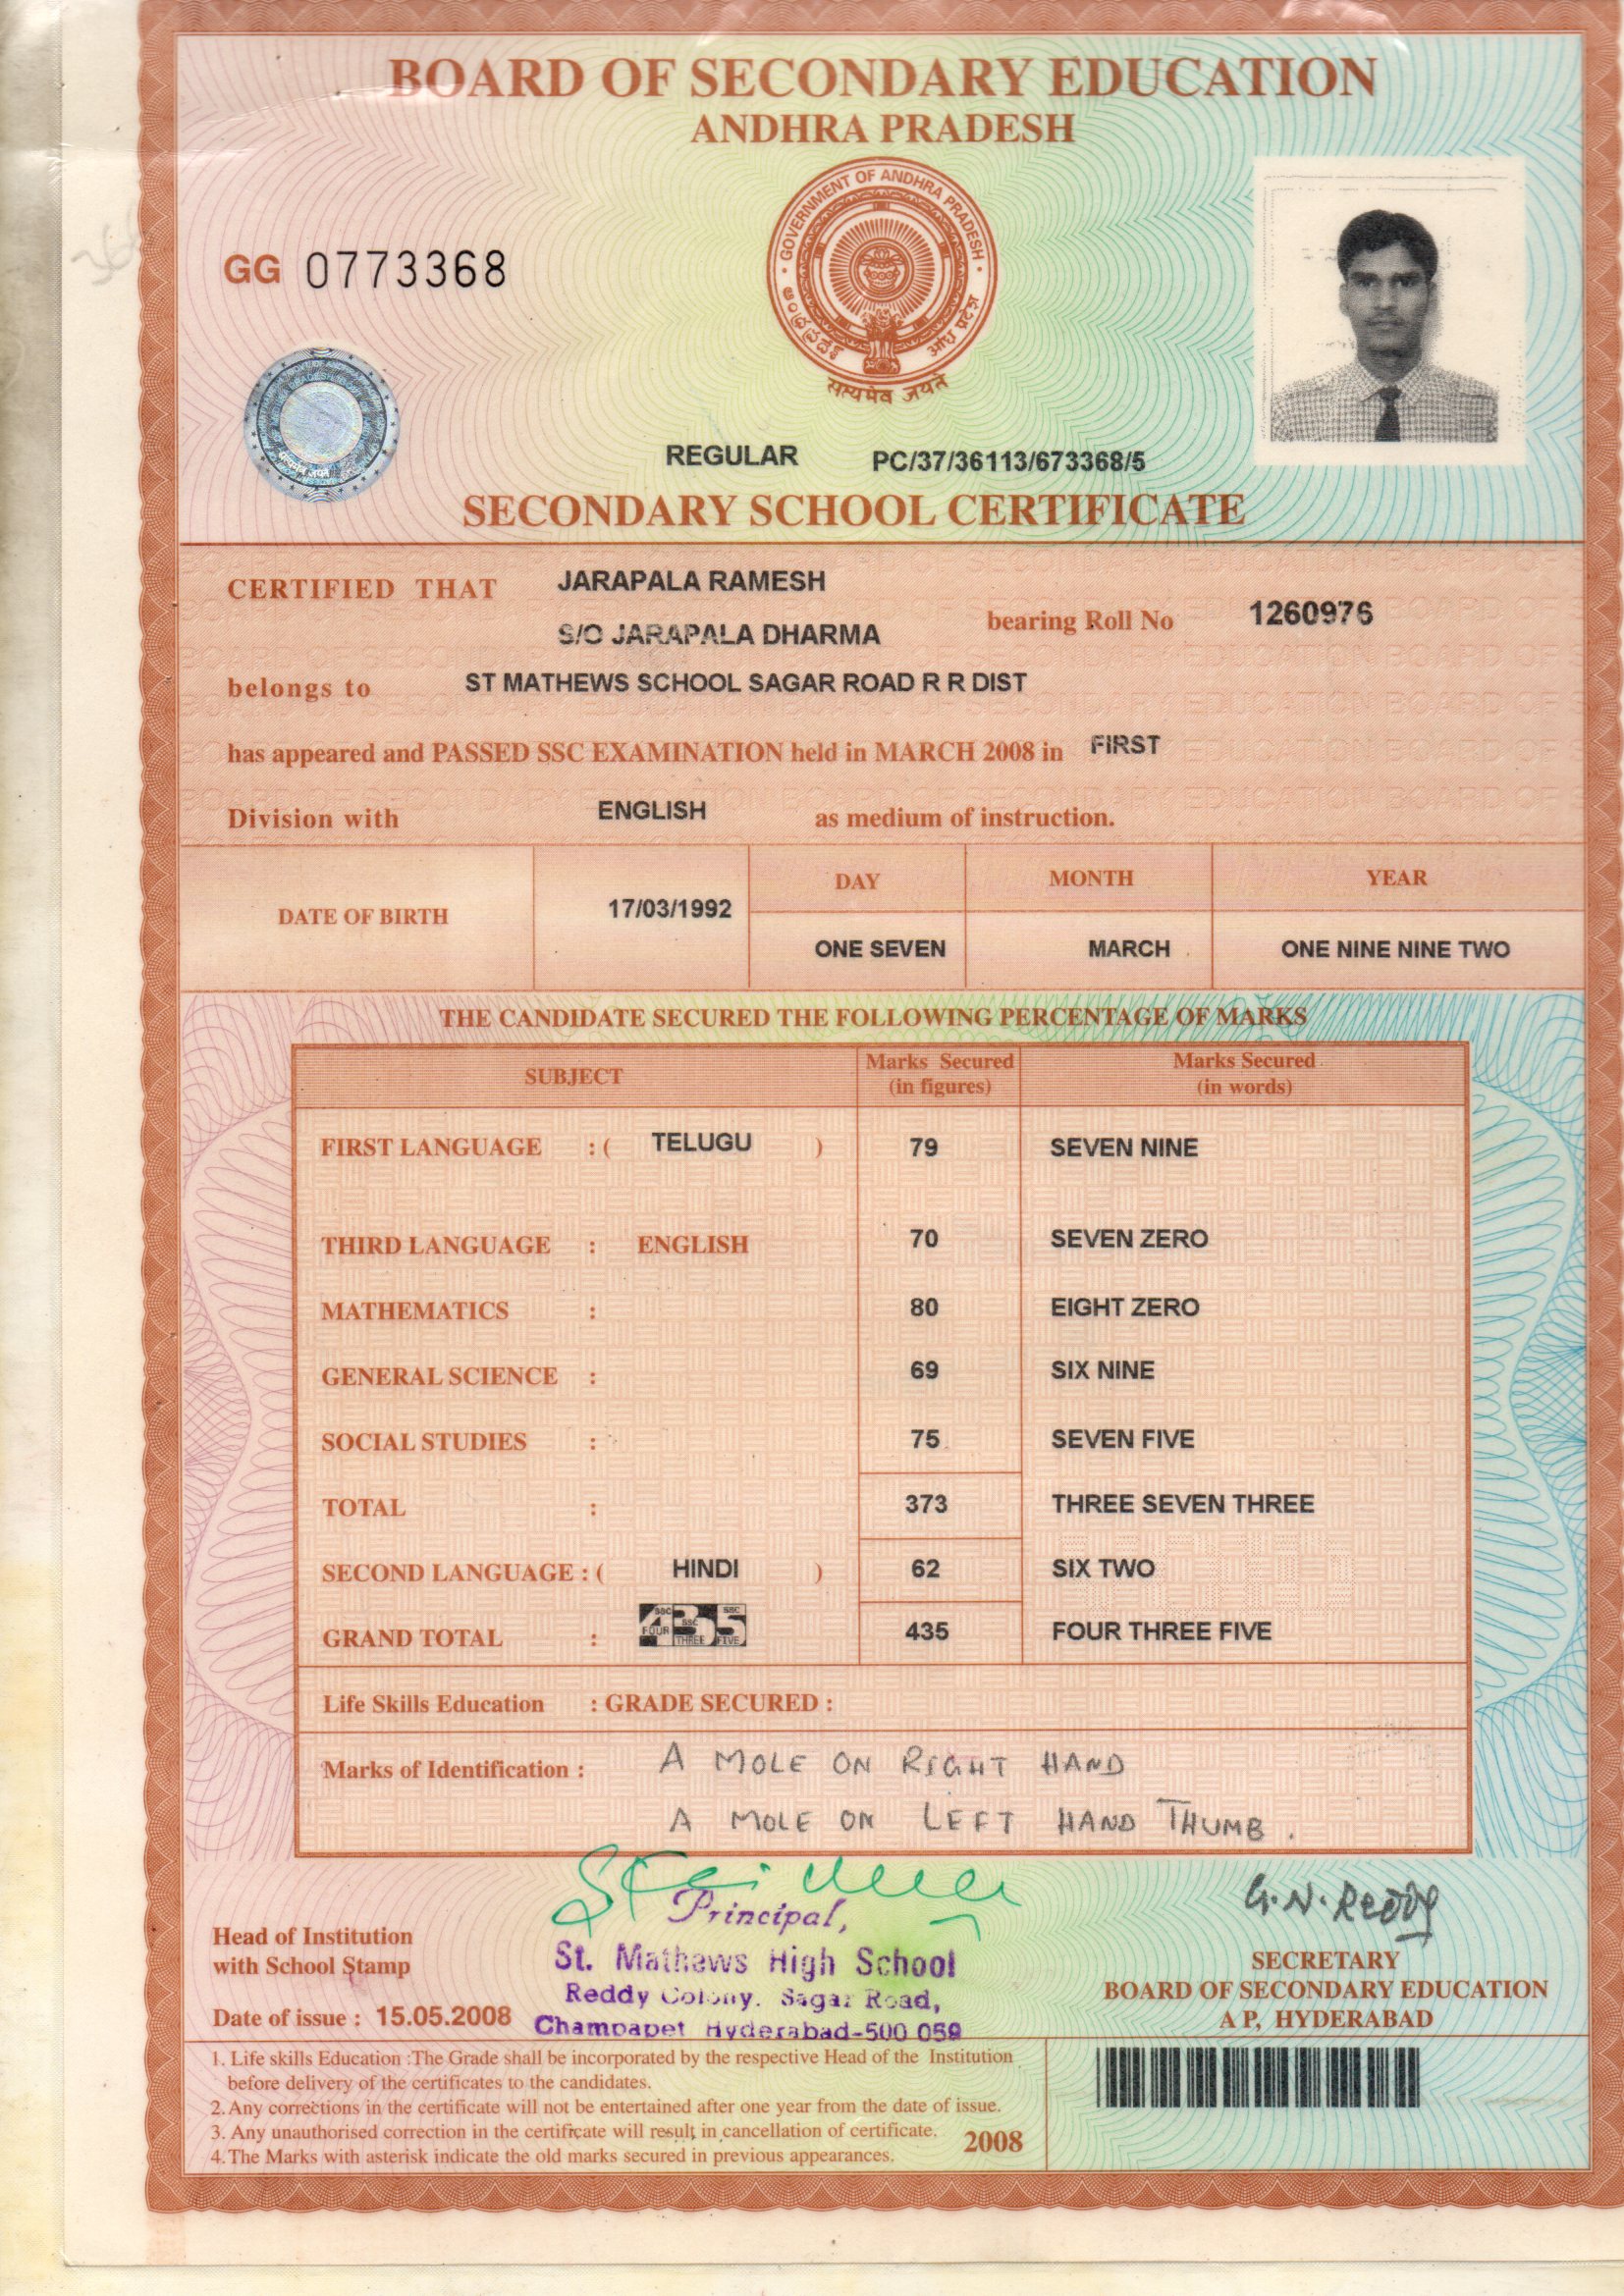 BOARD OF SECONDARY EDUCATION
ANDHRA PRADESH
GOVERNMENT OF ANDHRA PRADESH
ఆంధ్రప్రదేశ్ आंध्र प्रदेश
सत्यमेव जयते
GG 0773368
REGULAR PC/37/36113/673368/5
SECONDARY SCHOOL CERTIFICATE
CERTIFIED THAT JARAPALA RAMESH
S/O JARAPALA DHARMA bearing Roll No 1260976
belongs to ST MATHEWS SCHOOL SAGAR ROAD R R DIST
has appeared and PASSED SSC EXAMINATION held in MARCH 2008 in FIRST
Division with ENGLISH as medium of instruction.
DATE OF BIRTH 17/03/1992 DAY MONTH YEAR
ONE SEVEN MARCH ONE NINE NINE TWO
THE CANDIDATE SECURED THE FOLLOWING PERCENTAGE OF MARKS
SUBJECT Marks Secured (in figures) Marks Secured (in words)
FIRST LANGUAGE : ( TELUGU ) 79 SEVEN NINE
THIRD LANGUAGE : ENGLISH 70 SEVEN ZERO
MATHEMATICS : 80 EIGHT ZERO
GENERAL SCIENCE : 69 SIX NINE
SOCIAL STUDIES : 75 SEVEN FIVE
TOTAL : 373 THREE SEVEN THREE
SECOND LANGUAGE : ( HINDI ) 62 SIX TWO
GRAND TOTAL : 435 435 FOUR THREE FIVE
Life Skills Education : GRADE SECURED :
Marks of Identification : A MOLE ON RIGHT HAND
A MOLE ON LEFT HAND THUMB.
Principal,
St. Mathews High School
Reddy Colony. Sagar Road,
Champapet Hyderabad-500 059
Head of Institution
with School Stamp
Date of issue : 15.05.2008
G.N. Reddy
SECRETARY
BOARD OF SECONDARY EDUCATION
A P, HYDERABAD
1. Life skills Education :The Grade shall be incorporated by the respective Head of the Institution
before delivery of the certificates to the candidates.
2. Any corrections in the certificate will not be entertained after one year from the date of issue.
3. Any unauthorised correction in the certificate will result in cancellation of certificate.
4. The Marks with asterisk indicate the old marks secured in previous appearances.
2008